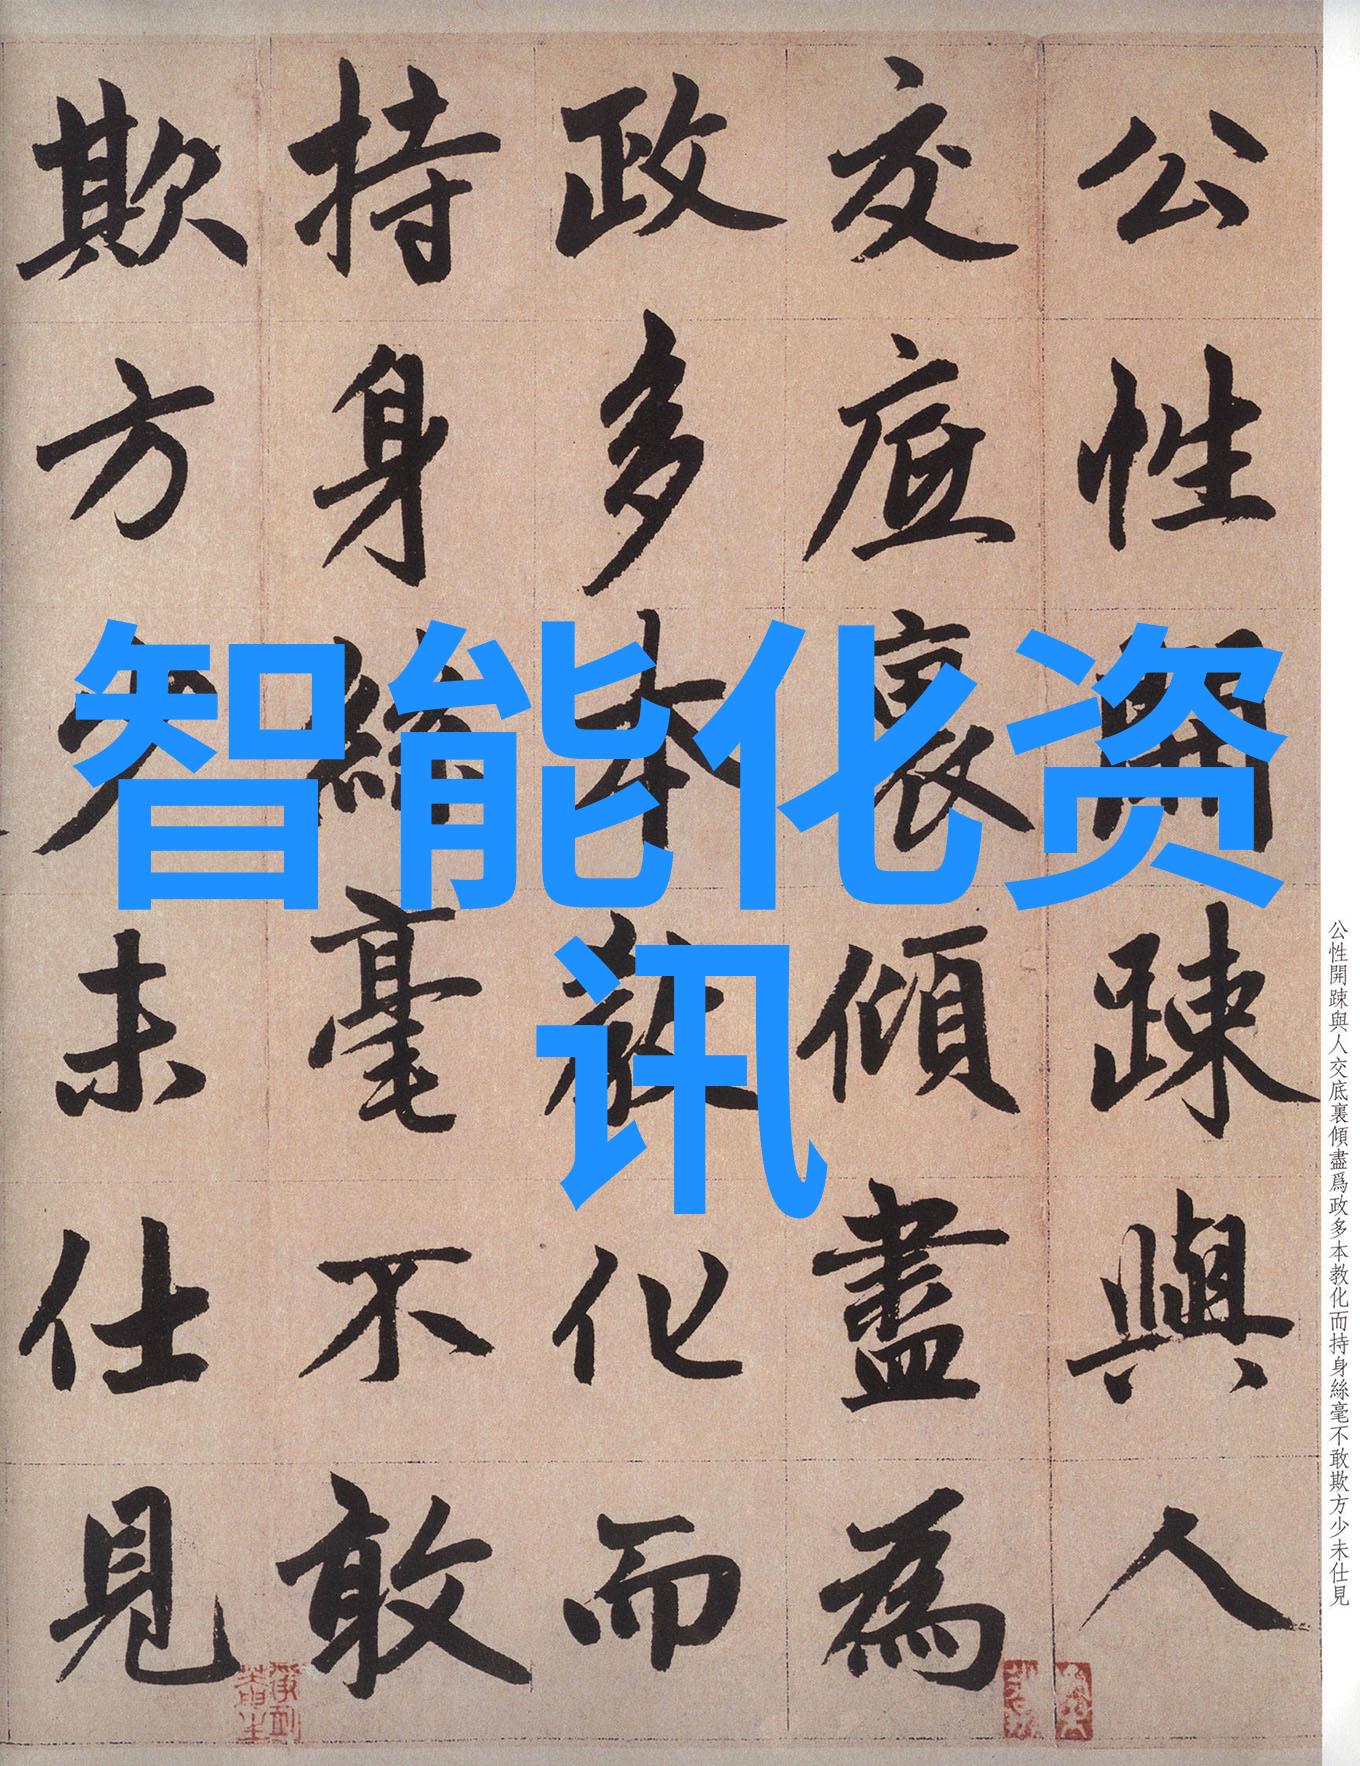 公性開踈與人
交底裏傾盡為
政多本教化而
持身絲毫不敢
欺方少未仕見
智能化资
讯
公性開踈與人交底裏傾盡爲政多本教化而持身絲毫不敢欺方少未仕見